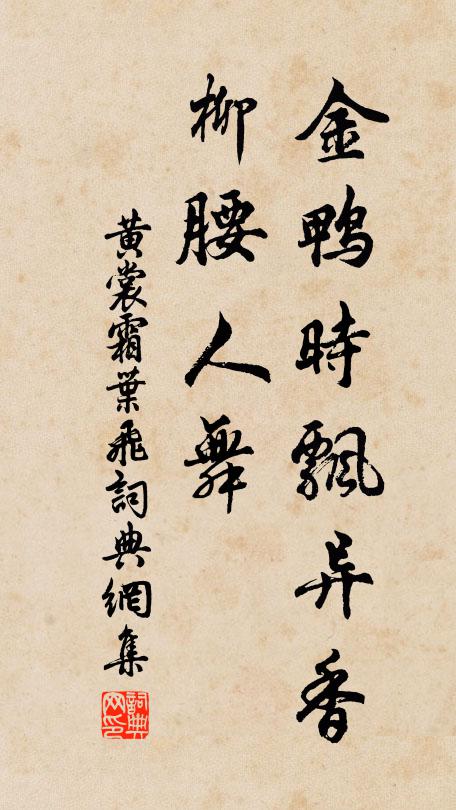 金鸭時飄异香
柳腰人舞
黄裳霜葉飛詞典網集
詞典网印